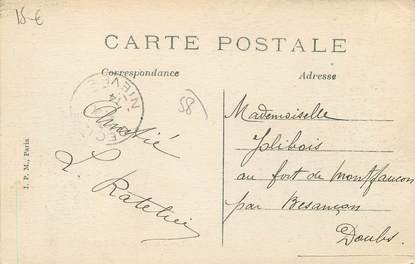 15-€
CARTE POSTALE
Correspondance
Adresse
NIEVRE
14
58
Amitié
L. Ratelier
Mademoiselle
Jolibois
au fort de Montfaucon
par Besançon
Doubs.
I. P. M., Paris